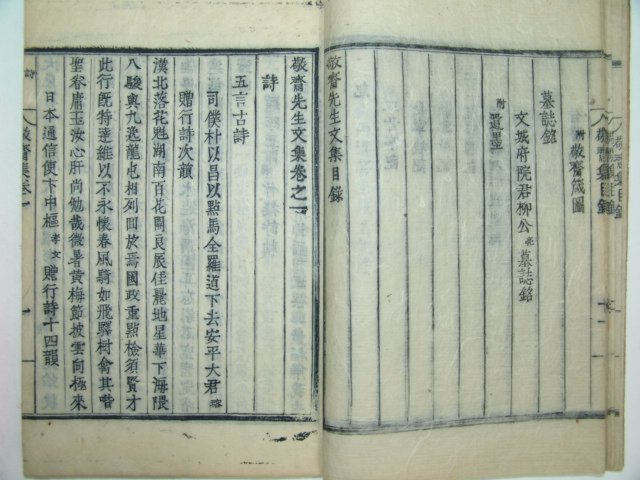 附 敬齋箴圖
墓誌銘
文城府院君柳公 亮 墓誌銘
附
遺墨
敬齋先生文集目錄
敬齋先生文集卷之一
詩
五言古詩
司僕朴以昌以點馬全羅道下去安平大君 瑢
贈行詩次韻
漢北落花魁湖南百花開良辰佳麗地星華下海隈
八駿與九逸龍也相列回於焉國政重點檢須賢才
此行旣特達維以不永懷春風騎如飛驛樹禽其喈
聖眷庸玉汝心肝尚勉哉微暑黃梅節披雲向極來
日本通信使卞中樞 孝文 贈行詩十四韻
詩
敬齋集卷一